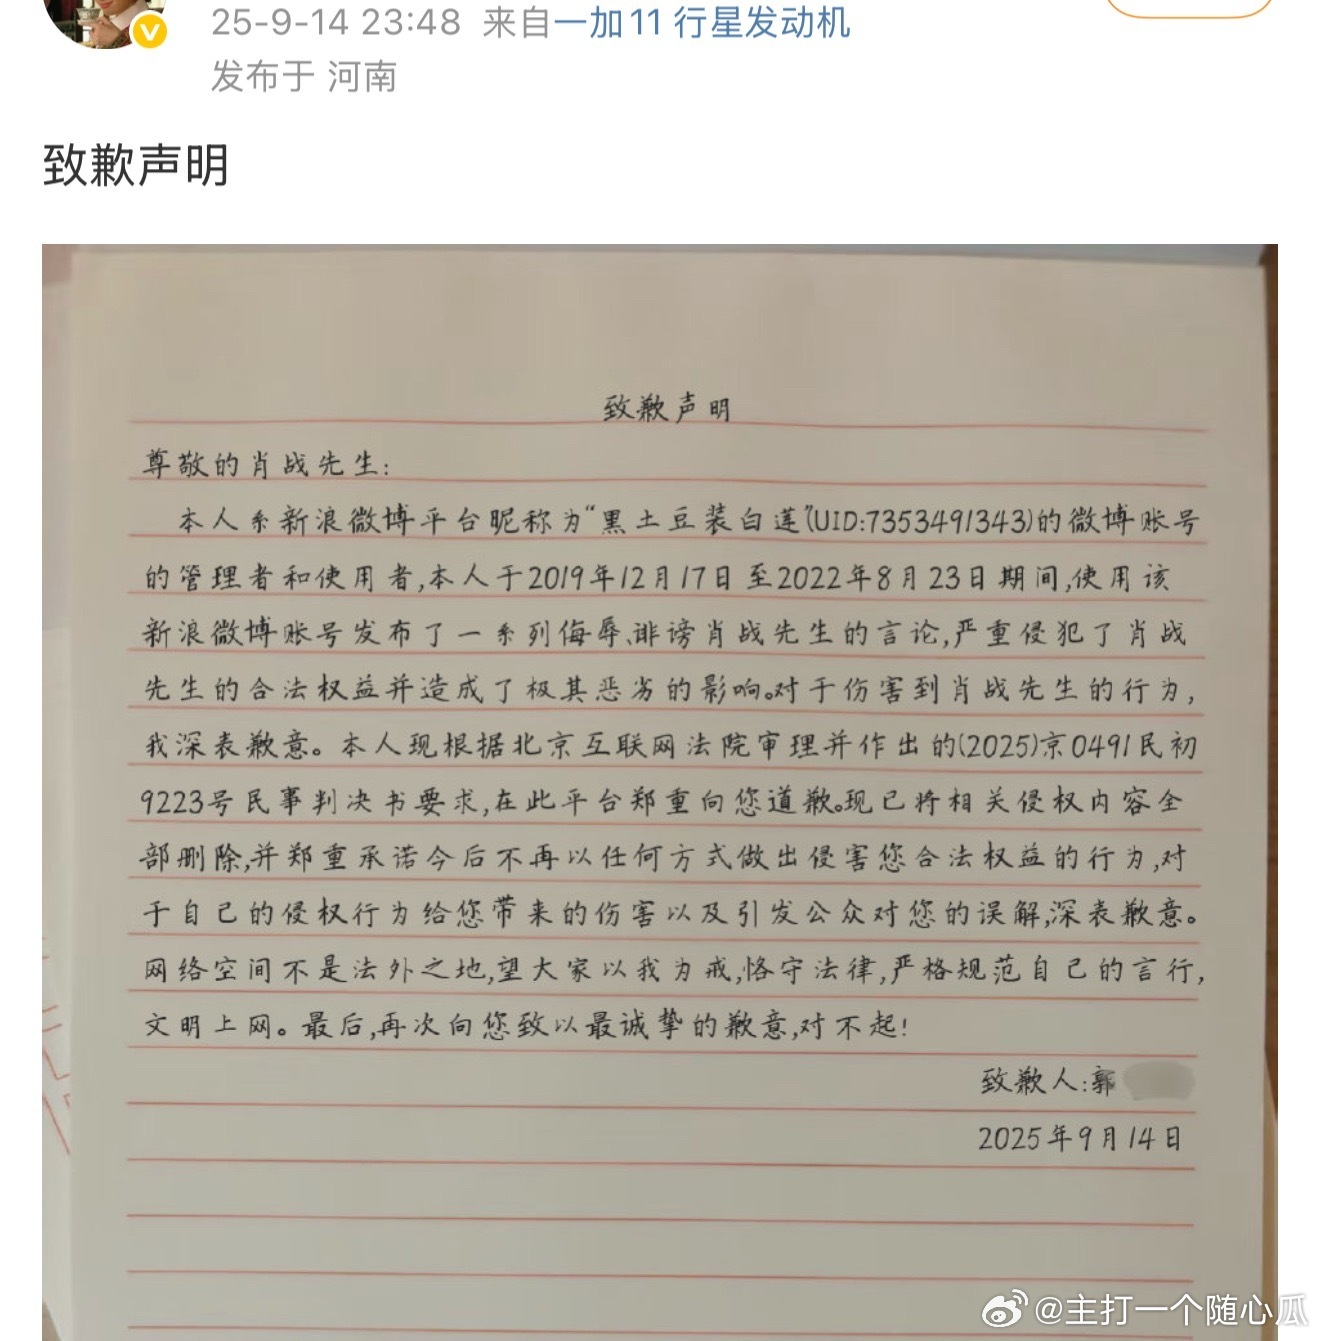 25-9-14 23:48 来自一加11 行星发动机
发布于 河南
致歉声明
致歉声明
尊敬的肖战先生:
本人系新浪微博平台昵称为“黑土豆装白莲”(UID:7353491343)的微博账号
的管理者和使用者,本人于2019年12月17日至2022年8月23日期间,使用该
新浪微博账号发布了一系列侮辱、诽谤肖战先生的言论,严重侵犯了肖战
先生的合法权益并造成了极其恶劣的影响。对于伤害到肖战先生的行为,
我深表歉意。本人现根据北京互联网法院审理并作出的(2025)京0491民初
9223号民事判决书要求,在此平台郑重向您道歉。现已将相关侵权内容全
部删除,并郑重承诺今后不再以任何方式做出侵害您合法权益的行为,对
于自己的侵权行为给您带来的伤害以及引发公众对您的误解,深表歉意。
网络空间不是法外之地,望大家以我为戒,恪守法律,严格规范自己的言行,
文明上网。最后,再次向您致以最诚挚的歉意,对不起!
致歉人:郭
2025年9月14日
@主打一个随心瓜